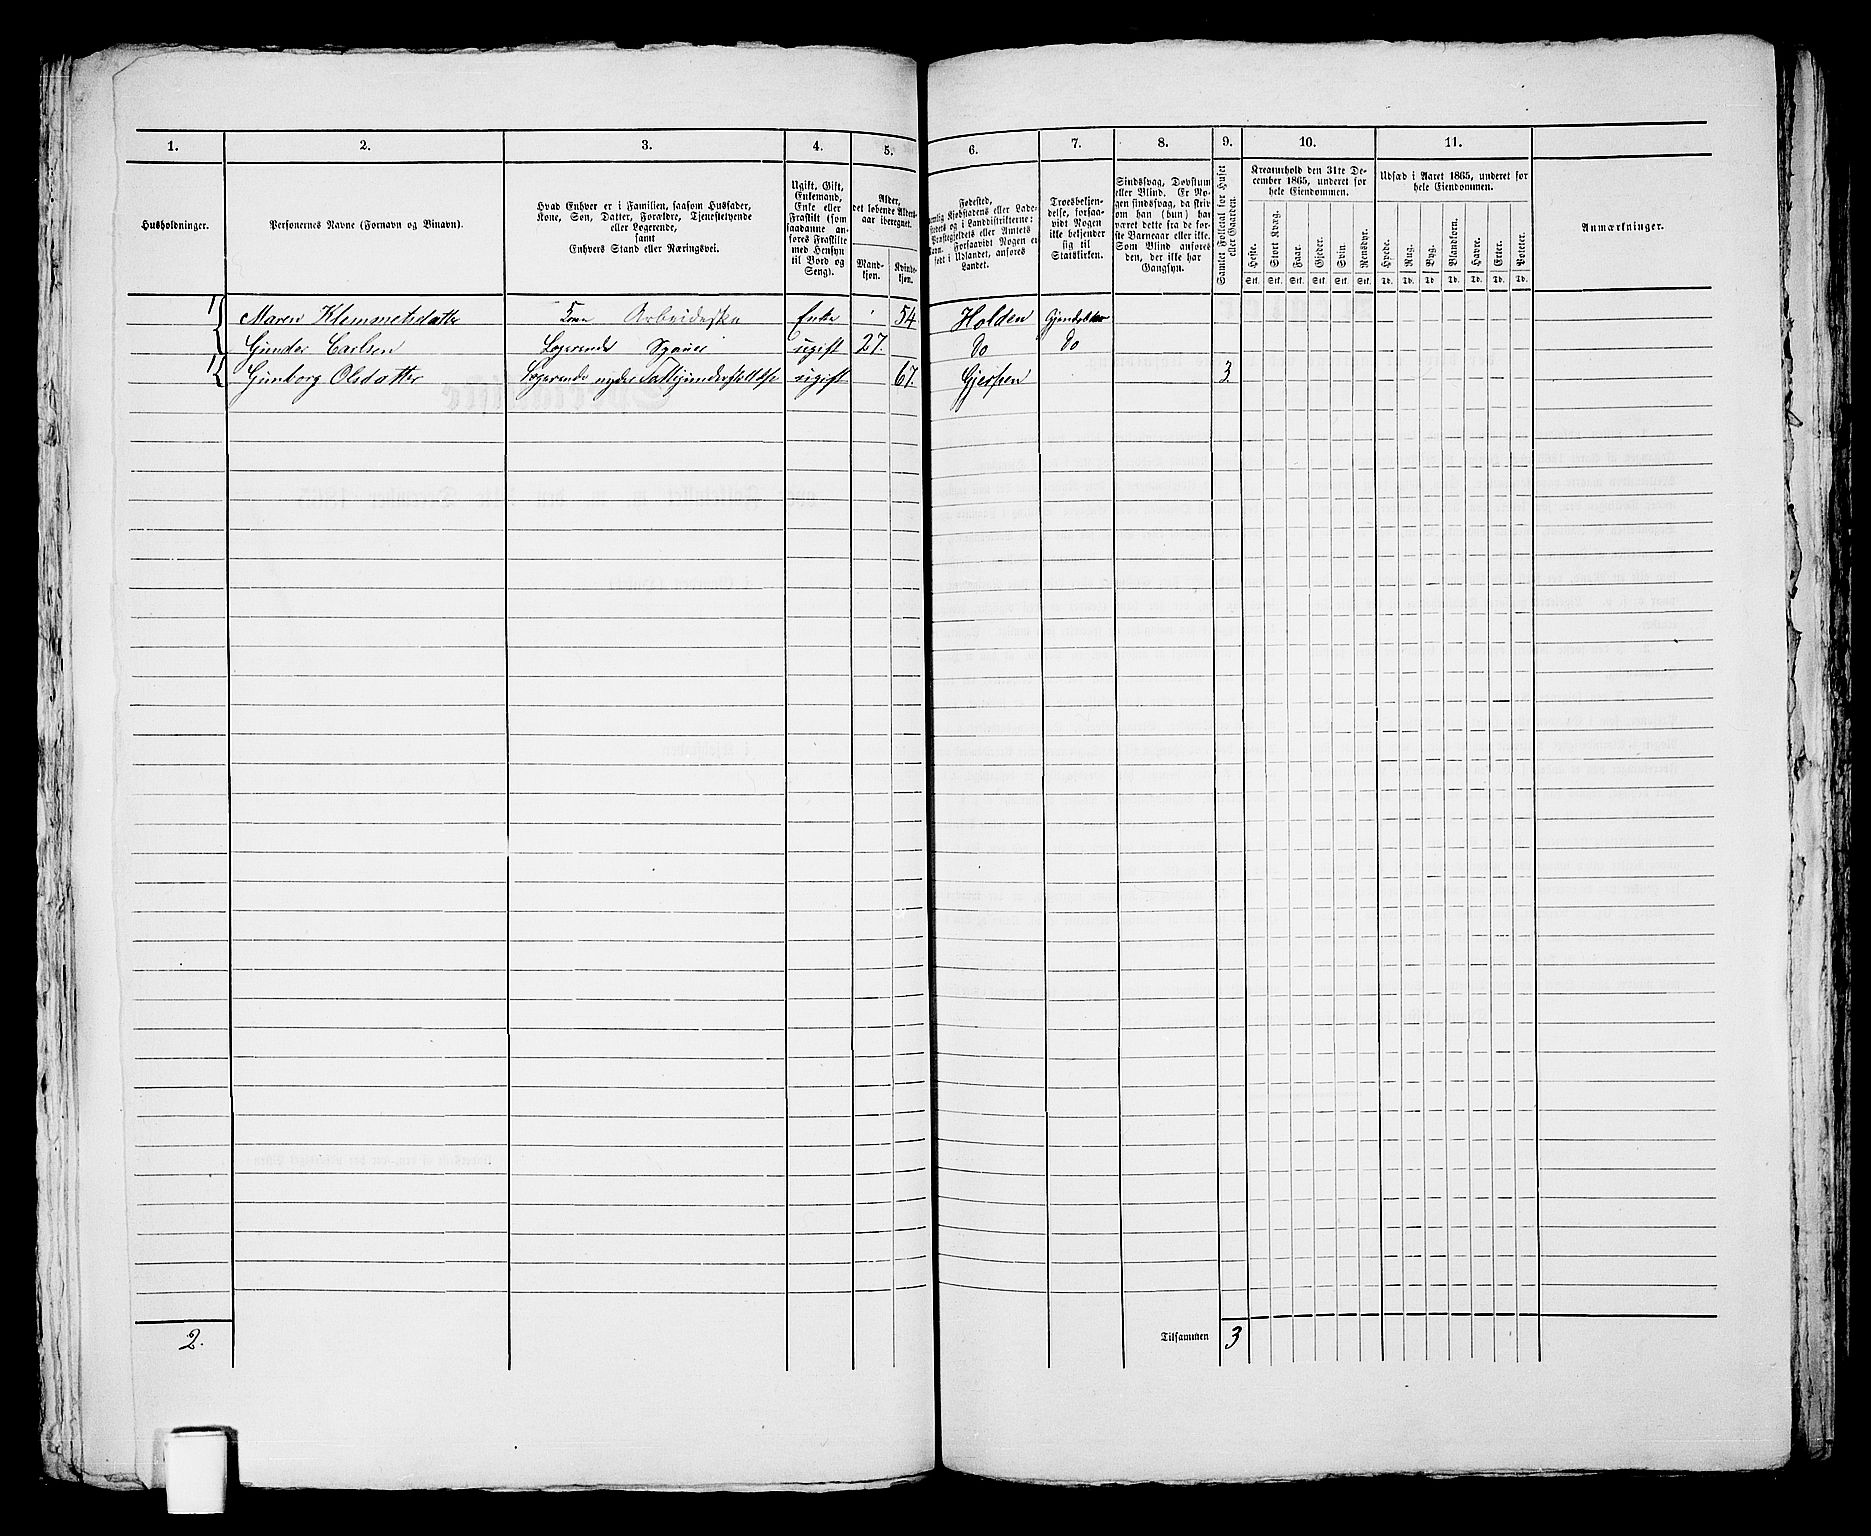 1. 2. 3. 4. 5. 6. 7. 8. 9. 10. 11.
Husholdninger.
Personernes Navne (Fornavn og Binavn).
Hvad Enhver er i Familien, saasom Husfader,
Kone, Søn, Datter, Forældre, Tjenestetyende
eller Logerende,
samt
Enhvers Stand eller Næringsvei.
Ugift, Gift,
Enkemand,
Enke eller
Fraskilt (som
saadanne an-
føres Fraskilte
med Hensyn
til Bord og
Seng).
Alder,
det løbende Alders-
aar iberegnet.
Mand-
kjøn.
Kvinde-
kjøn.
Fødested,
nemlig Kjøbstadens eller Lade-
stedets og i Landdistrikterne:
Præstegjeldets eller Amtets
Navn. Forsaavidt Nogen er
født i Udlandet, anføres
Landet.
Troesbekjen-
delse, forsaa-
vidt Nogen
ikke bekjender
sig til
Statskirken.
Sindssvag, Døvstum
eller Blind. Er No-
gen sindssvag, da skriv
om han (hun) har
været dette fra de før-
ste Barneaar eller ikke.
Som Blind anføres
den, der ikke har
Gangsyn.
Samlet Folketal for Huset
eller Gaarden.
Kreaturhold den 31te De-
cember 1865, underet for
hele Eiendommen.
Heste. Stort Kvæg. Faar. Gjeder. Svin. Rensdyr.
Stk. Stk. Stk. Stk. Stk. Stk.
Udsæd i Aaret 1865, underet for
hele Eiendommen.
Hvede. Rug. Byg. Blandkorn. Havre. Erter. Poteter.
Td. Td. Td. Td. Td. Td. Td.
Anmærkninger.
1 Maren Klemmetsdatter Arbeideske Enke 54 Holden
Gunder Carlsen Logerende ugift 27. do do
1 Gunborg Olsdatter Logerende nyder Fattigunderstøttelse ugift 67. Gjerpen 3
2. Tilsammen 3